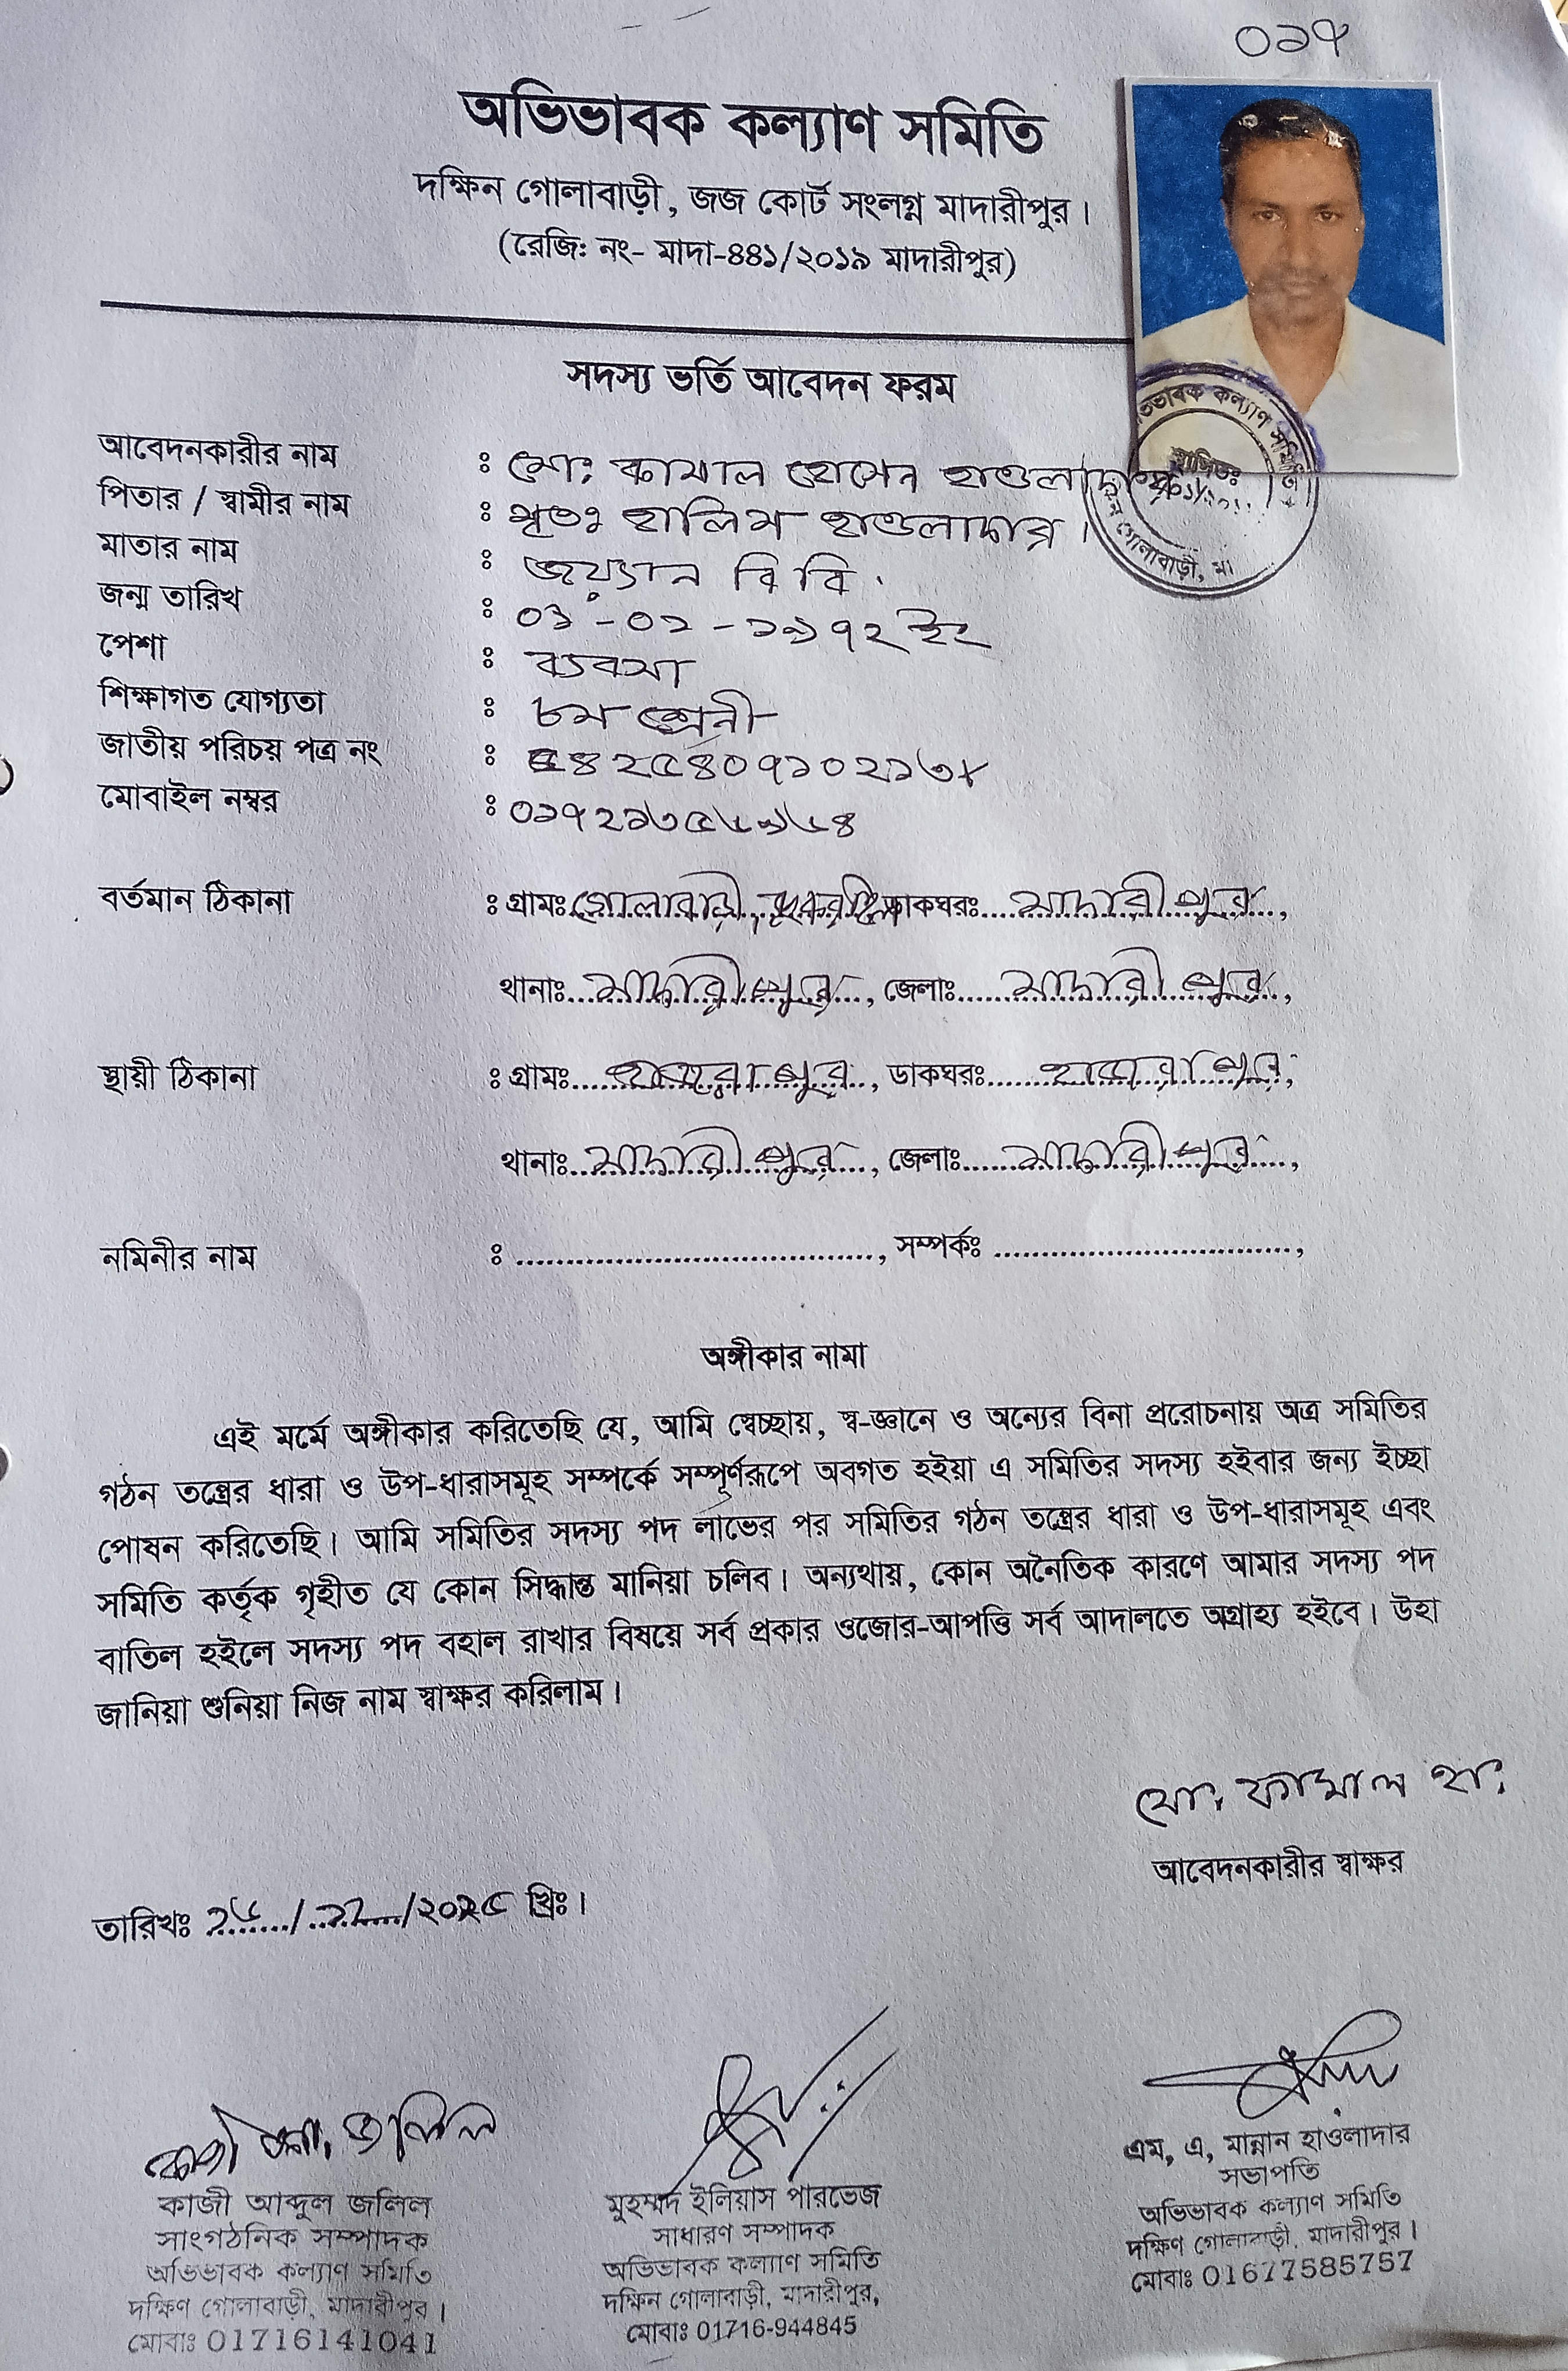 ০১৭
অভিভাবক কল্যাণ সমিতি
দক্ষিন গোলাবাড়ী, জজ কোর্ট সংলগ্ন মাদারীপুর।
(রেজি: নং- মাদা-৪৪১/২০১৯ মাদারীপুর)
সদস্য ভর্তি আবেদন ফরম
আবেদনকারীর নাম : মো: কামাল হোসেন হাওলাদার
পিতার / স্বামীর নাম : মৃতঃ হালিম হাওলাদার।
মাতার নাম : বিবি
জন্ম তারিখ : ০১-০১-১৯৭২ ইং
পেশা : ব্যবসা
শিক্ষাগত যোগ্যতা : ৮ম শ্রেনী
জাতীয় পরিচয় পত্র নং :
মোবাইল নম্বর : ০১৭২১৩৫৬৯৬৪
বর্তমান ঠিকানা : গ্রামঃ গোলাবাড়ী, ডাকঘরঃ মাদারীপুর,
থানাঃ মাদারীপুর, জেলাঃ মাদারীপুর,
স্থায়ী ঠিকানা : গ্রামঃ হাজরাপুর, ডাকঘরঃ হাজরাপুর,
থানাঃ মাদারীপুর, জেলাঃ মাদারীপুর,
নমিনীর নাম : ................................, সম্পর্কঃ ................................,
অঙ্গীকার নামা
এই মর্মে অঙ্গীকার করিতেছি যে, আমি স্বেচ্ছায়, স্ব-জ্ঞানে ও অন্যের বিনা প্ররোচনায় অত্র সমিতির
গঠন তন্ত্রের ধারা ও উপ-ধারাসমূহ সম্পর্কে সম্পূর্ণরূপে অবগত হইয়া এ সমিতির সদস্য হইবার জন্য ইচ্ছা
পোষন করিতেছি। আমি সমিতির সদস্য পদ লাভের পর সমিতির গঠন তন্ত্রের ধারা ও উপ-ধারাসমূহ এবং
সমিতি কর্তৃক গৃহীত যে কোন সিদ্ধান্ত মানিয়া চলিব। অন্যথায়, কোন অনৈতিক কারণে আমার সদস্য পদ
বাতিল হইলে সদস্য পদ বহাল রাখার বিষয়ে সর্ব প্রকার ওজোর-আপত্তি সর্ব আদালতে অগ্রাহ্য হইবে। উহা
জানিয়া শুনিয়া নিজ নাম স্বাক্ষর করিলাম।
মো: কামাল হা:
আবেদনকারীর স্বাক্ষর
তারিখঃ ১৬/১১/২০২৫ খ্রিঃ।
কাজী আব্দুল জলিল
সাংগঠনিক সম্পাদক
অভিভাবক কল্যাণ সমিতি
দক্ষিণ গোলাবাড়ী, মাদারীপুর।
মোবাঃ 01716141041
মুহম্মদ ইলিয়াস পারভেজ
সাধারণ সম্পাদক
অভিভাবক কল্যাণ সমিতি
দক্ষিন গোলাবাড়ী, মাদারীপুর,
মোবাঃ 01716-944845
এম, এ, মান্নান হাওলাদার
সভাপতি
অভিভাবক কল্যাণ সমিতি
দক্ষিণ গোলাবাড়ী, মাদারীপুর।
মোবাঃ 01677585757